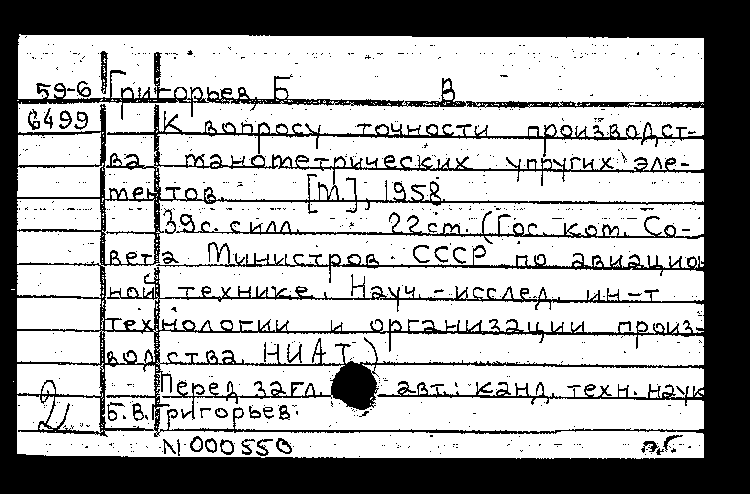 59-6 Григорьев, Б В
6499 К вопросу точности производст-
ва манометрических упругих эле-
ментов. [М.], 1958
39с. с илл. 22 см. (Гос. ком. Со-
вета Министров СССР по авиацион
ной технике. Науч.-исслед. ин-т
технологии и организации произ-
водства. НИАТ)
Перед загл. авт.: канд. техн. наук
2 Б.В. Григорьев.
N000550 п.г.